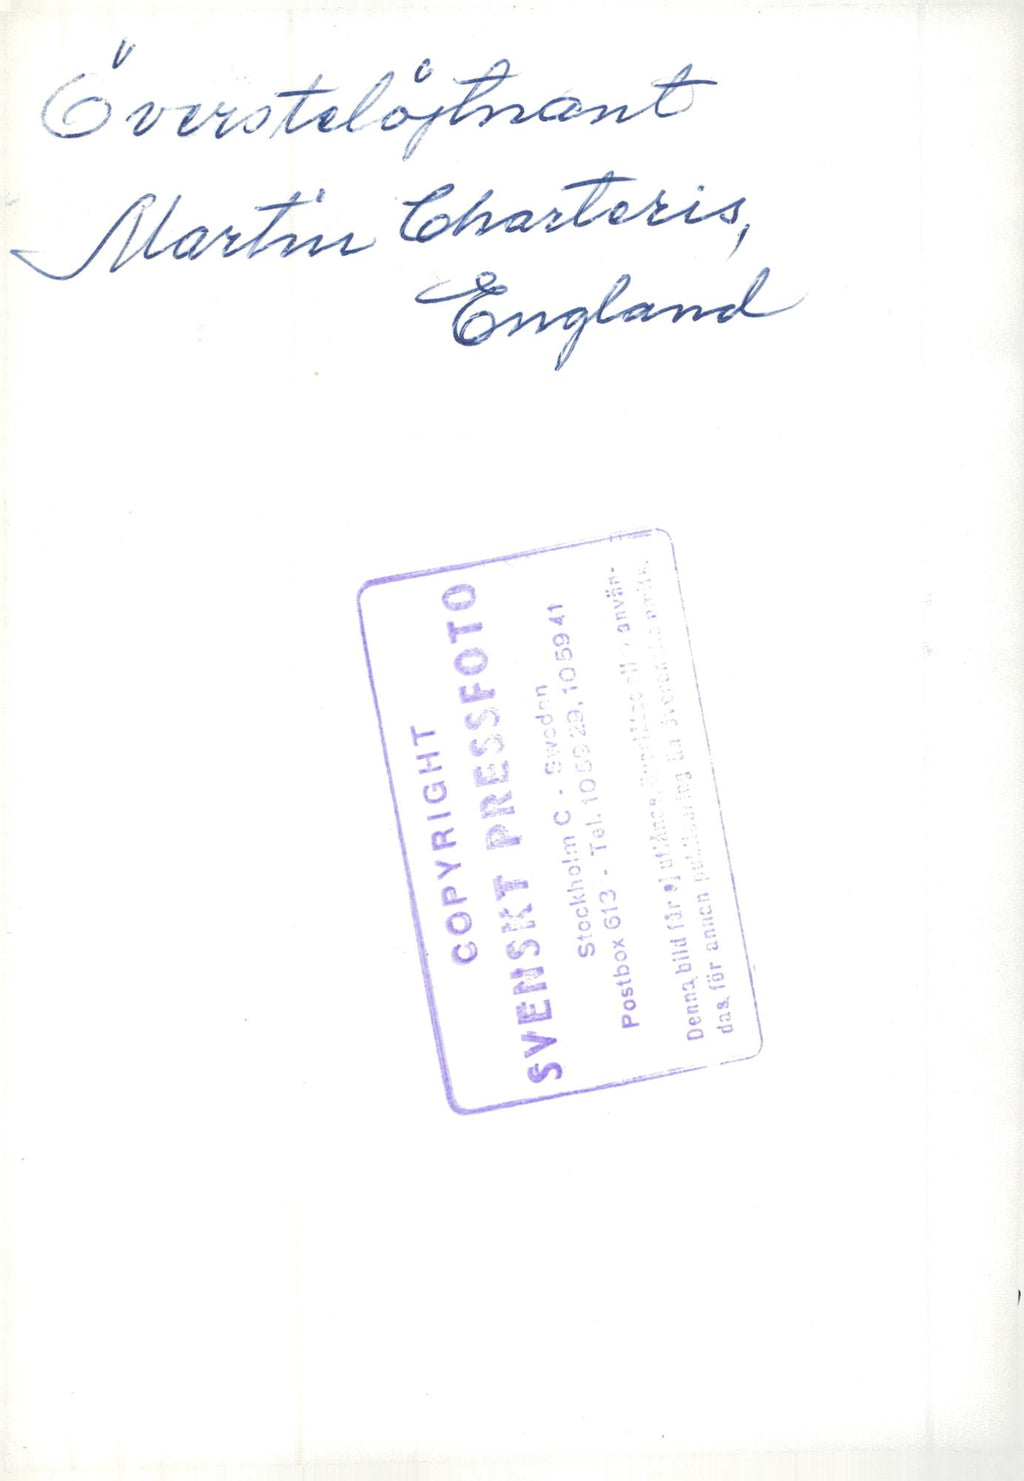 Överstelöjtnant
Martin Charteris,
England
COPYRIGHT
SVENSKT PRESSFOTO
Stockholm C - Sweden
Postbox 613 - Tel. 10 59 29, 10 59 41
Denna bild får ej utlånas, överlåtas eller använ-
das för annan publicering än överenskommits.